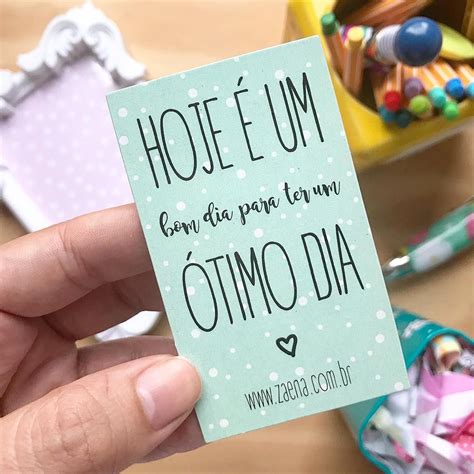 HOJE É UM
bom dia para ter um
ÓTIMO DIA
www.zaena.com.br